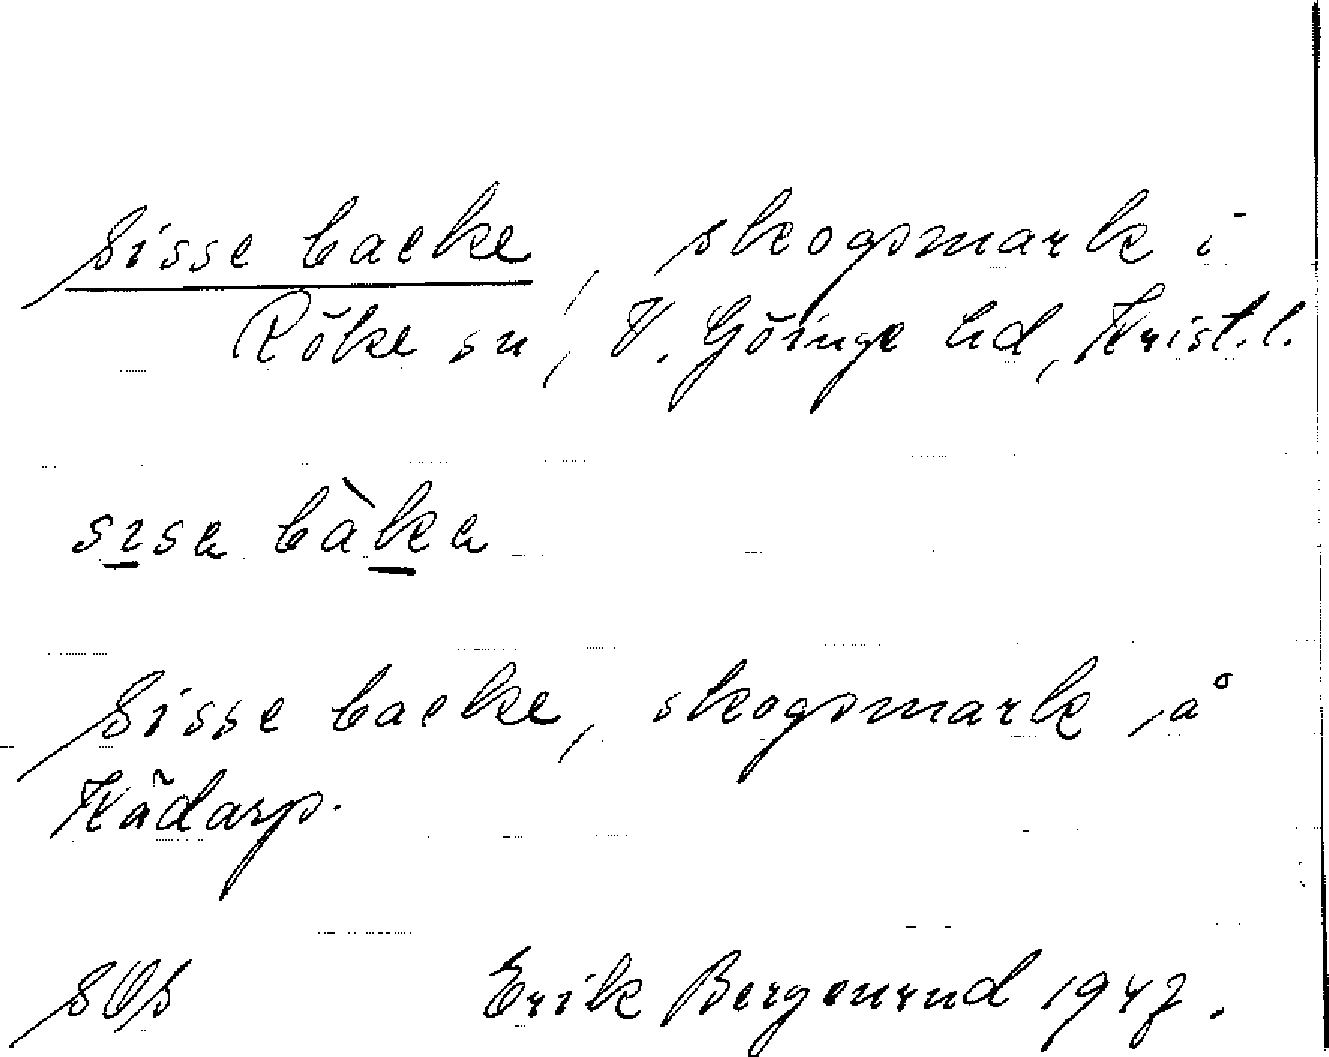 Sisse backe, skogsmark i
Röke sn, V. Göinge hd, Krist. l.
sısa bàka
Sisse backe, skogsmark å
Kädarp.
SOS Erik Bergenrud 1947.